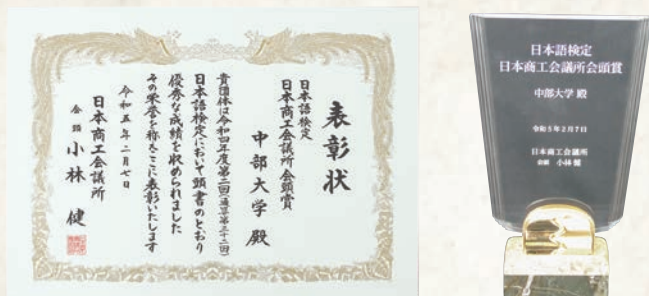 表彰状
日本語検定
日本商工会議所会頭賞
中部大学 殿
貴団体は令和四年度第二回(通算第三十二回)
日本語検定において頭書のとおり
優秀な成績を収められました
その栄誉を称えここに表彰いたします
令和五年二月七日
日本商工会議所
会頭 小林 健
日本語検定
日本商工会議所会頭賞
中部大学 殿
令和5年2月7日
日本商工会議所
会頭 小林 健